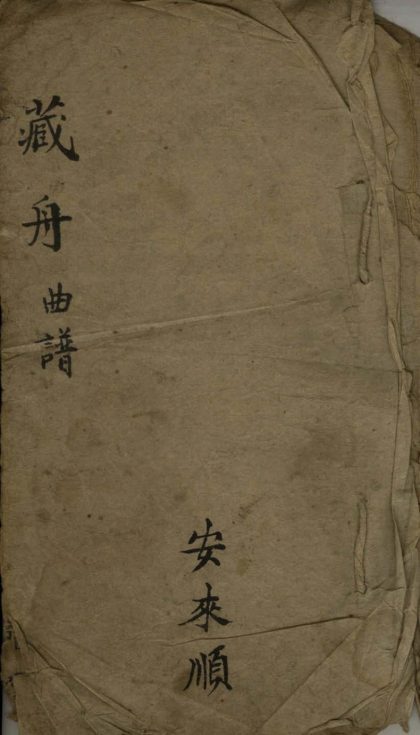 藏舟曲譜
安來順